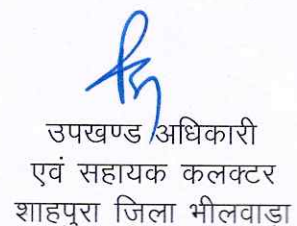 उपखण्ड अधिकारी
एवं सहायक कलक्टर
शाहपुरा जिला भीलवाडा